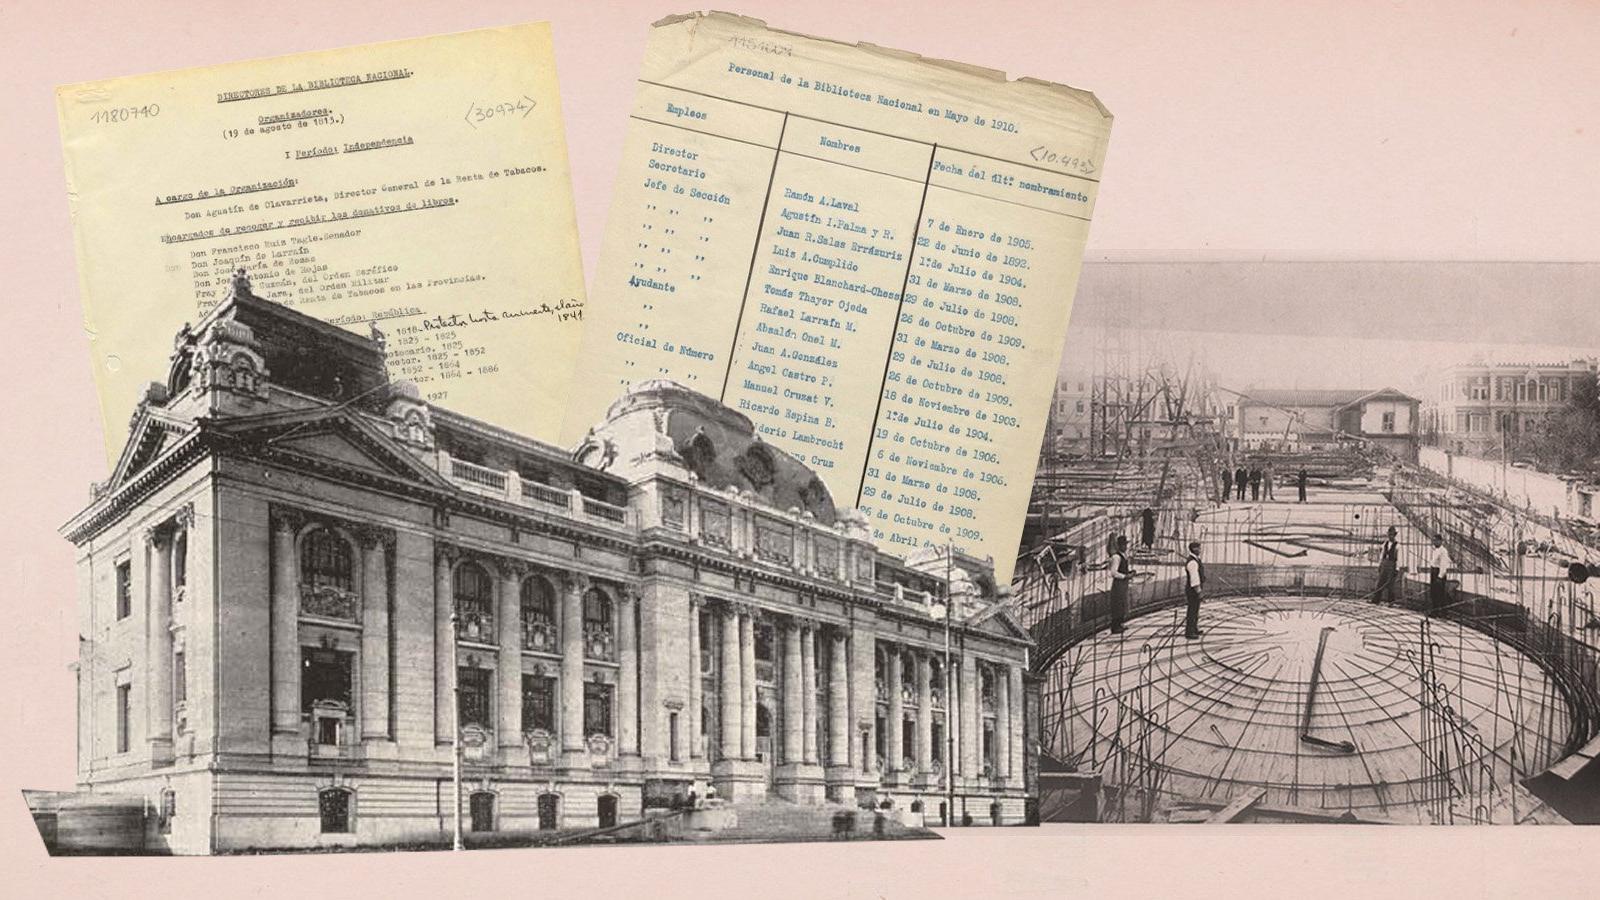 1180740
DIRECTORES DE LA BIBLIOTECA NACIONAL.
<30974>
Organizadores.
(19 de agosto de 1813.)
I Período: Independencia
A cargo de la Organización:
Don Agustín de Olavarrieta, Director General de la Renta de Tabacos.
Encargados de recoger y recibir los donativos de libros.
Don Francisco Ruiz Tagle.Senador
Don Joaquín de Larraín
Don José María de Rosas
Don José Antonio de Rojas
Fray Guzmán, del Orden Seráfico
Fray Jara, del Orden Militar
de Renta de Tabacos en las Provincias.
Período: República
1818. Protector hasta
1841
1823 - 1825
1825
1825 - 1852
1852 - 1864
1864 - 1886
1927
Personal de la Biblioteca Nacional en Mayo de 1910.
Empleos
Nombres
Fecha del últº nombramiento
Director
Secretario
Jefe de Sección
,, ,, ,,
,, ,, ,,
,, ,, ,,
,, ,, ,,
Ayudante
,,
,,
Oficial de Número
,, ,, ,,
,, ,, ,,
Ramón A.Laval
Agustín I.Palma y R.
Juan R.Salas Errázuris
Luis A.Cumplido
Enrique Blanchard-Chess
Tomás Thayer Ojeda
Rafael Larraín M.
Absalón Onel M.
Juan A.González
Angel Castro P.
Manuel Cruzat V.
Ricardo Espina B.
Lambrecht
Cruz
7 de Enero de 1905.
22 de Junio de 1892.
1º de Julio de 1904.
31 de Marzo de 1908.
29 de Julio de 1908.
26 de Octubre de 1909.
31 de Marzo de 1908.
29 de Julio de 1908.
26 de Octubre de 1909.
18 de Noviembre de 1903.
1º de Julio de 1904.
19 de Octubre de 1906.
6 de Noviembre de 1906.
31 de Marzo de 1908.
29 de Julio de 1908.
26 de Octubre de 1909.
de Abril